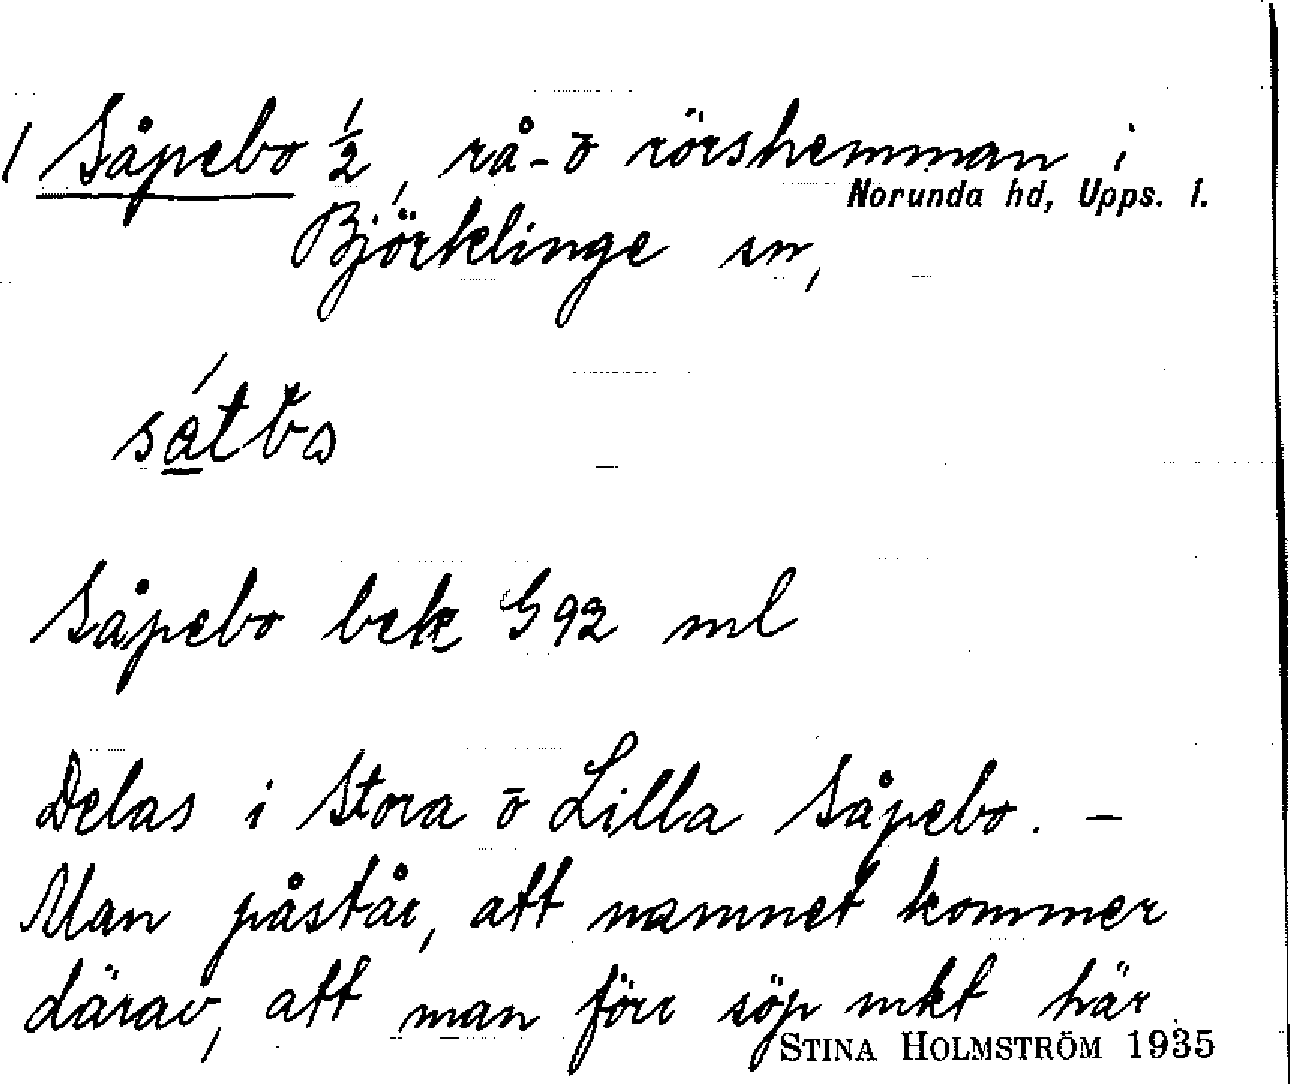 Såpebo ½, rå- o rörshemman i
Norunda hd, Upps. l.
Björklinge sn,
Såpebo bek G 92 ml
Delas i Stora o Lilla Såpebo. –
Man påstår, att namnet kommer
därav, att man förr söp mkt här
STINA HOLMSTRÖM 1935